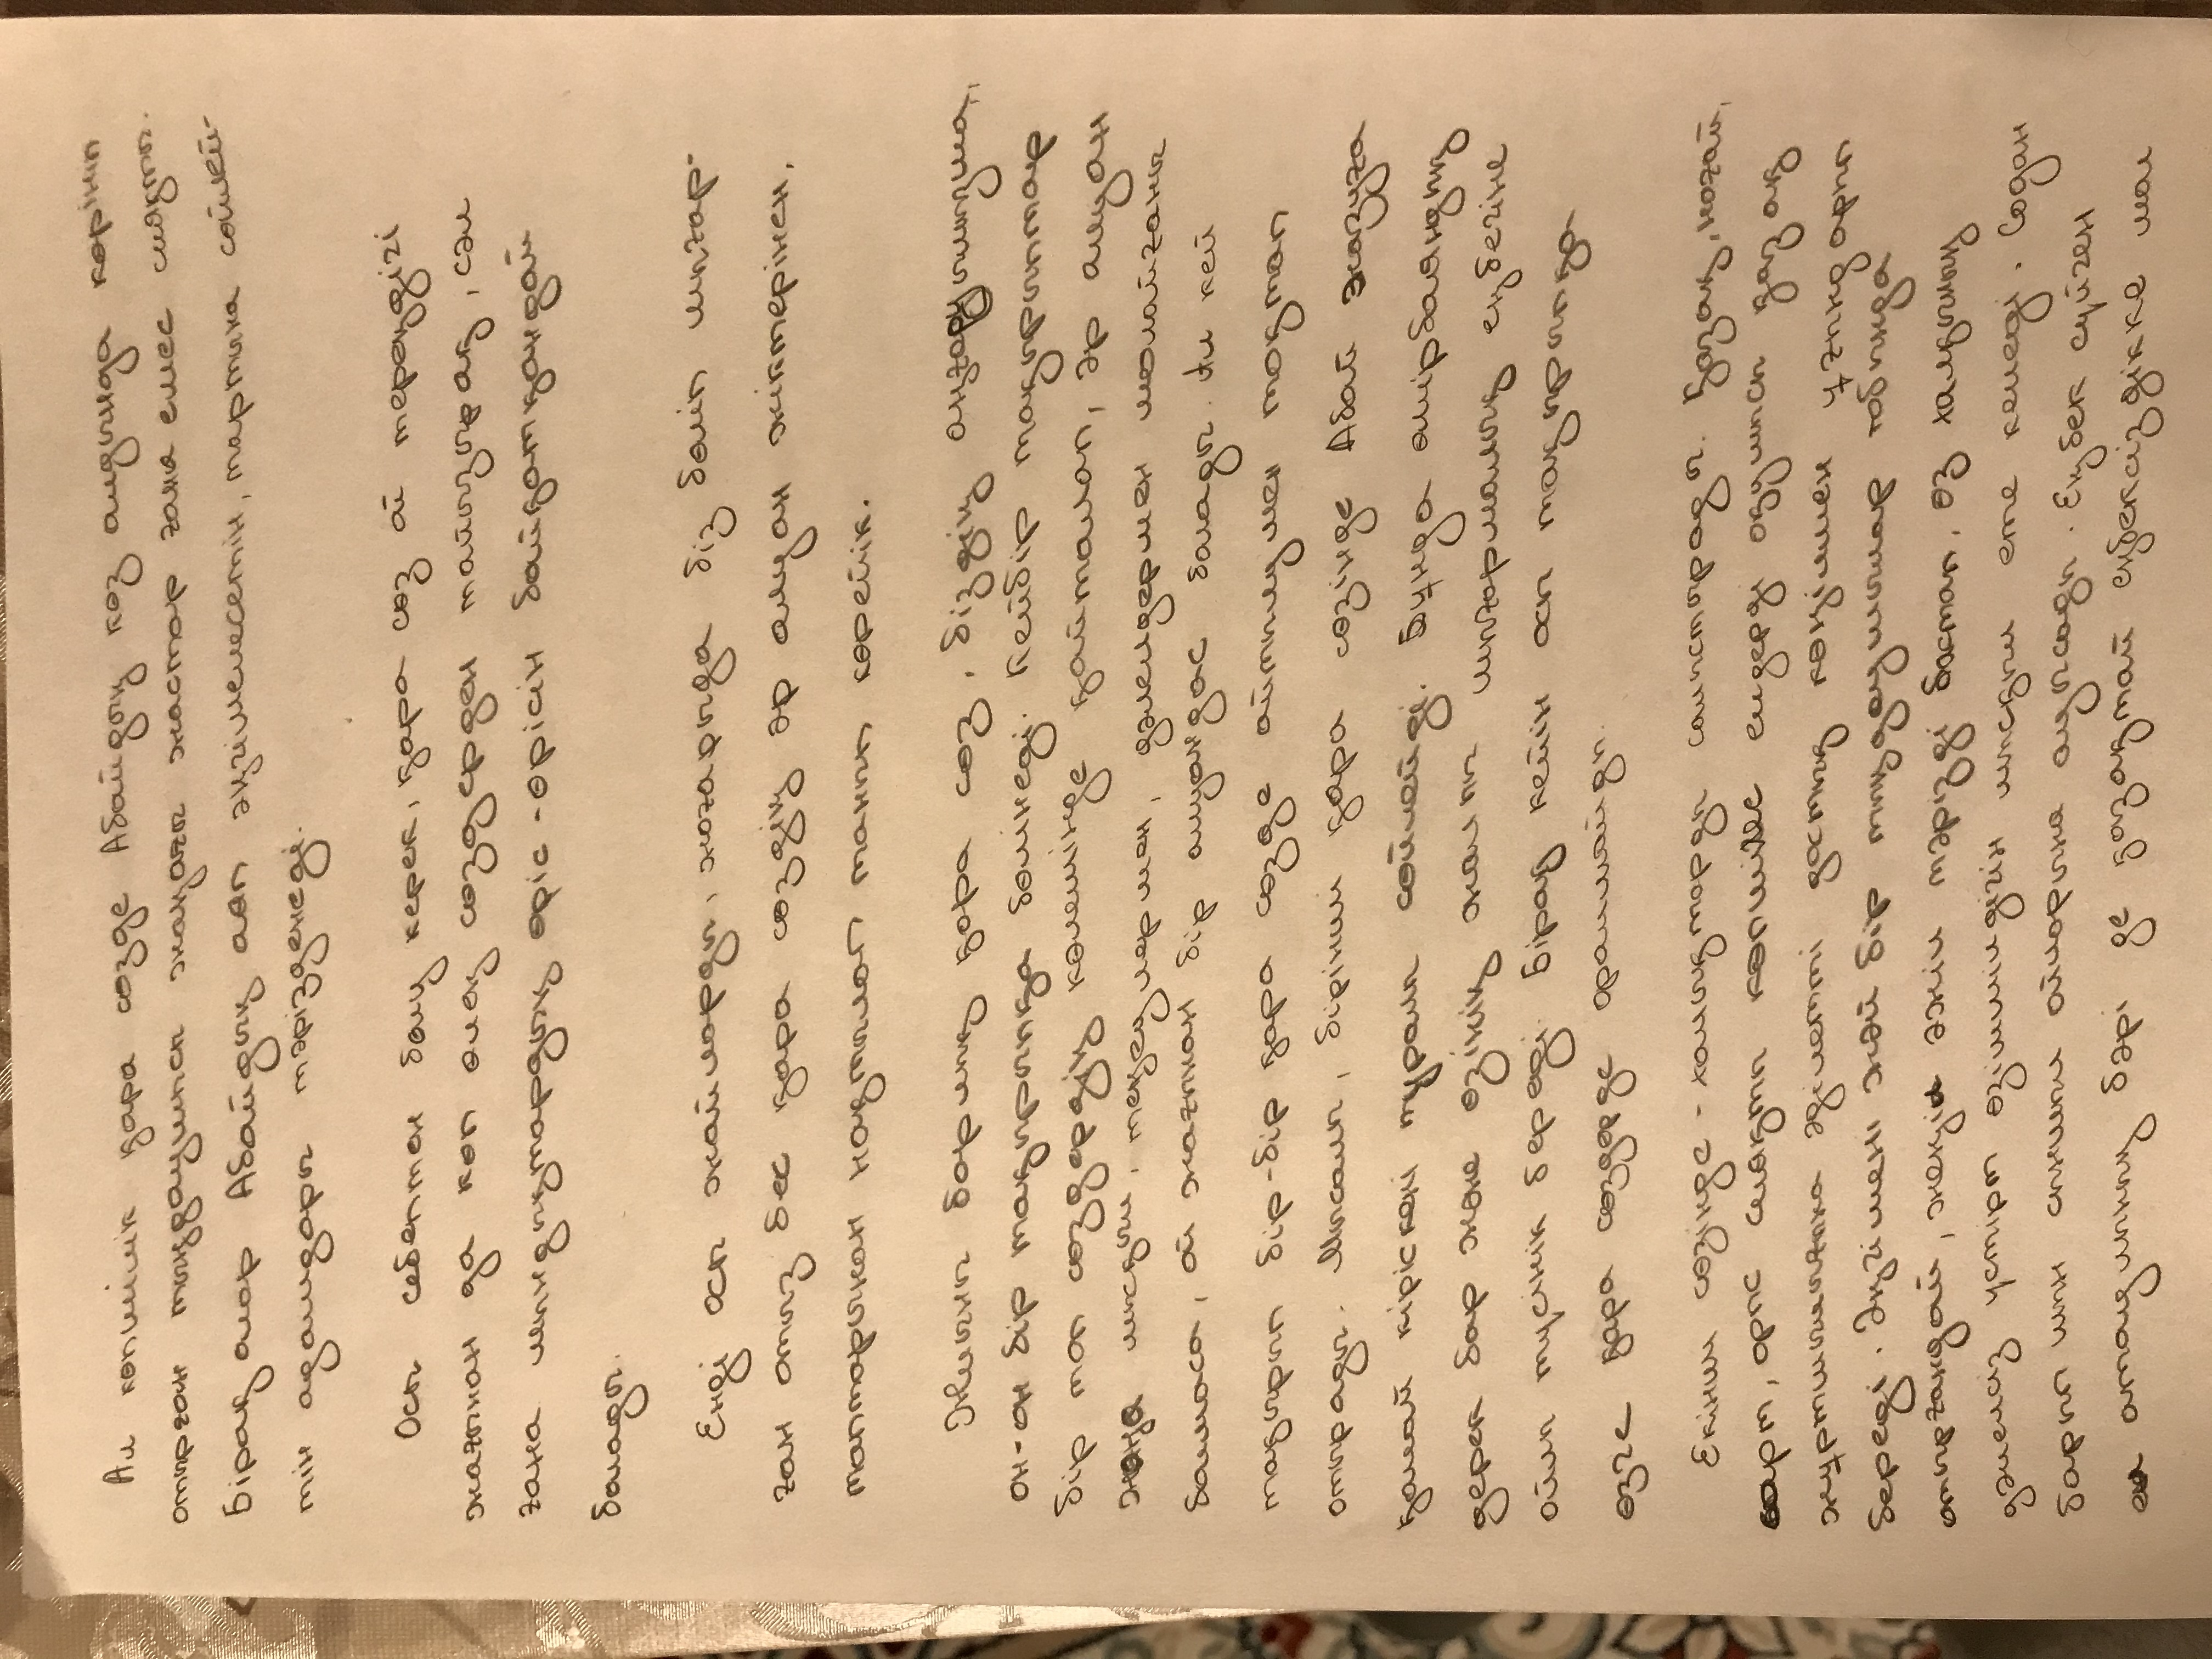 Ал көпшілік қара сөзде Абайдың көз алдында көрініп
отырған тыңдаушысы жаңағы жастар ғана емес сияқты.
Бірақ олар Абайдың алып әңгімелесетін, тартына сөйлей-
тін адамдары тәрізденеді.
Осы себептен болу керек, қара сөз ой тереңдігі
жағынан да көп өлең сөздерден тайызырақ, сәл
ғана шындықтардың өріс-өрісін байқатқандай
болады.
Енді осы жайларды, жоғарыда біз бөліп шығар-
ған отыз бес қара сөздің әр алуан жіктерінен,
топтарынан нақтылап танып көрейік.
Жиыны барлық қара сөз, біздің аңғаруымызша,
он-он бір тақырыпқа бөлінеді. Кейбір тақырыптар
бір топ сөздердің көлемінде қайталап, әр алуан
жаңа мысқыл, теңеулермен, дәлелдермен молайғаны
болмаса, ой жағынан бір алуандас болады. Ал кей
тақырып бір-бір қара сөзде айтылумен тоқтап
отырады. Мысалы, бірінші қара сөзінде Абай жазуға
қалай кіріскені туралы сөйлейді. Бұнда өмірбаяндық
дерек бар және өзінің жалпы шығармалық еңбегіне
ойлы түсінік береді. Бірақ кейін осы тақырыпқа
өзге қара сөздерде оралмайды.
Екінші сөзінде - халықтарды салыстырады. Қазақ, ноғай,
сарт, орыс сияқты көпшілес елдерді оқушысы қазақ
жұртшылығына әділетті достық көңілмен ұғындарып
береді. Әңгімені жәй бір тыңдаушылар тобында
отырғандай, жеңіл әжіл тәрізді бастап, өз халқының
дәлелсіз үстірт өзімшілдігін мысқыл ете келеді. Содан
барып шын сыншыл ойларына ауысады. Еңбек сүйген
ел атаулының бәрі де қазақтай еңбексіздікке мол